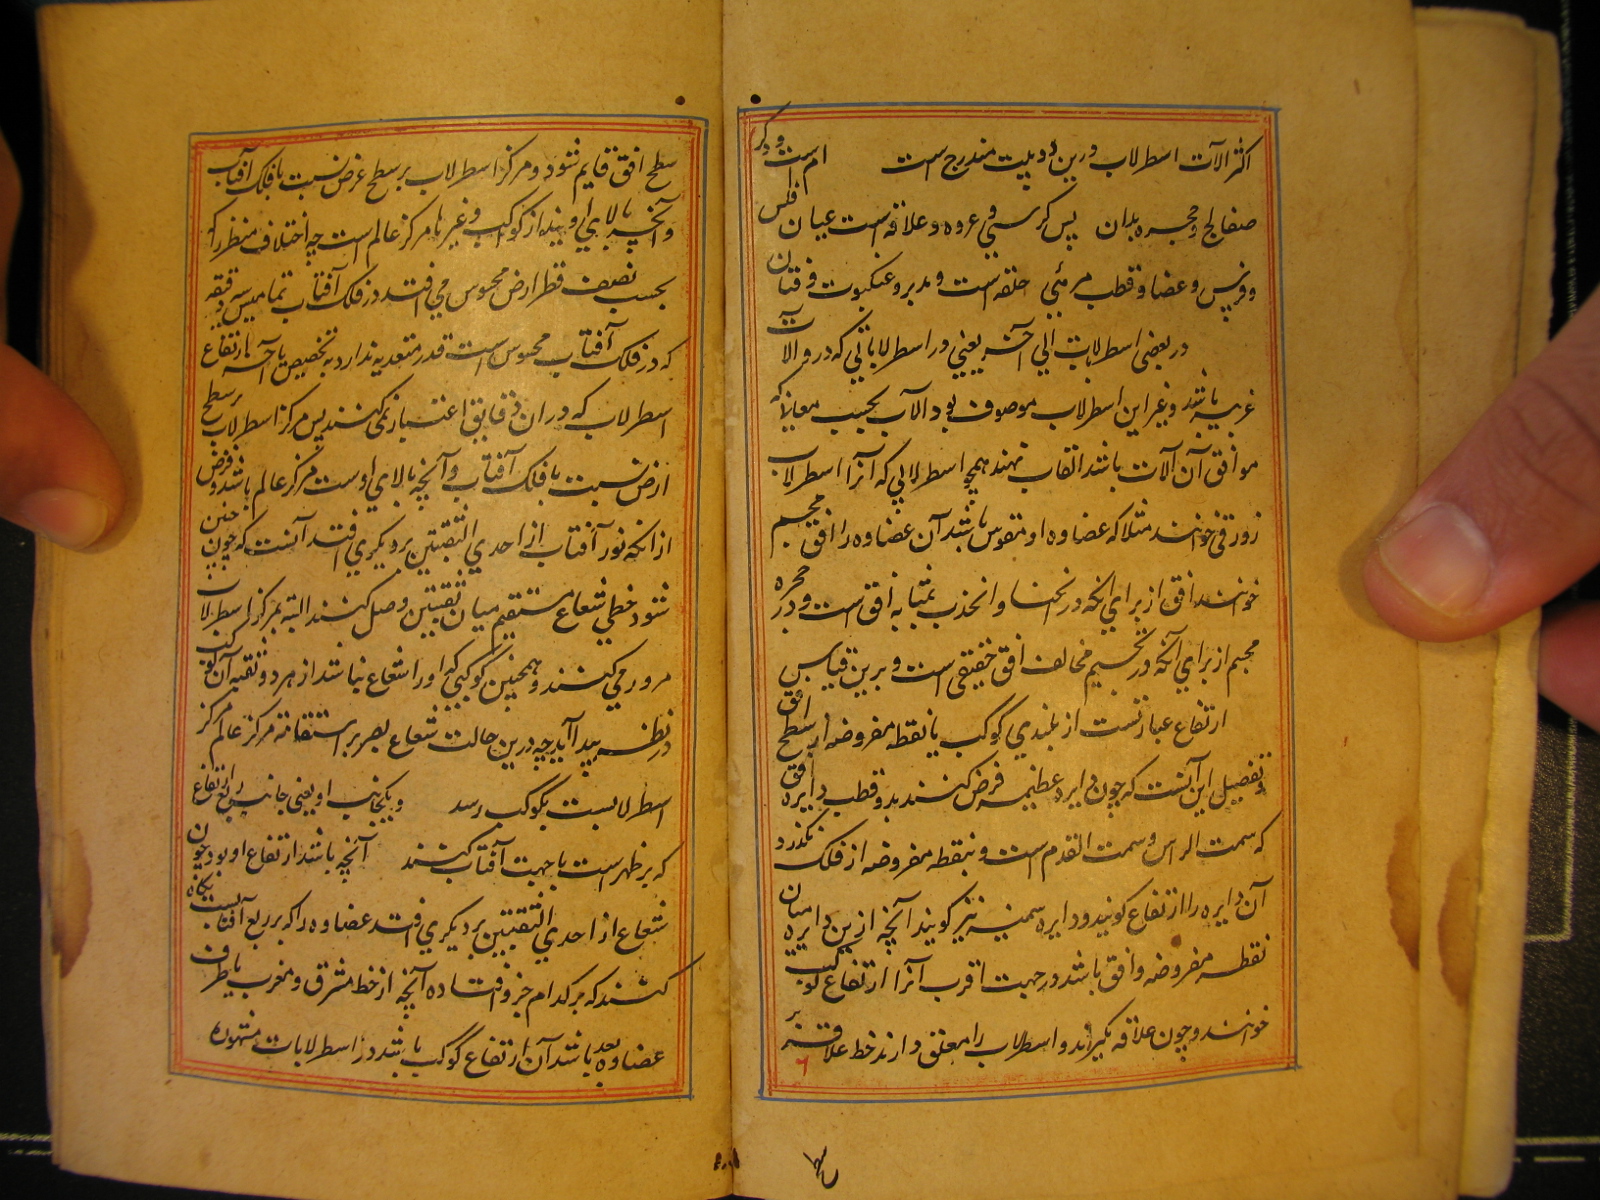 اکثر الآت اسطرلاب درین دو بیت مندرج است ام است و ذکر
صفالح و حجره بدان پس کرسی و عروه و علاقه است عیان فلس
و فرس و عضاه و قطب مرئی حلقه است و مدیر و عنکبوت و فتان
در بعضی اسطرلابات الی آخره یعنی در اسطرلاباتی که درو الات
غریبه باشد و غیر این اسطرلاب موصوف بود الآب بحسب معالا که
موافق آن آلات باشد القاب نهند همچو اسطرلابی که آنرا اسطرلاب
زورقی خوانند مثلا که عضاوه او مقوس باشد آن عضاوه را افق مجیم
خوانند افق از برای آنکه در انحنا و انحذب بمثابه افق است و در حجره
مجیم از برای آنکه در تجسیم مخالف افق حقیقی است و برین قیاس
ارتفاع عبارتست از بلندی کوکب یا نقطه مفروضه از سطح افق
و تفصیل این آنست که چون دایره عظیمه فرض کنند بدو قطب دایره افق
که سمت الراس و سمت القدم است و بنقطه مفروضه از فلک بگذرد
آن دایره را ارتفاع کویند و دایره سمتیه نیز کویند آنچه ازین دایره میان
نقطه مفروضه و افق باشد در جهت اقرب آنرا ارتفاع کوکب
خوانند و چون علاقه بگیرند و اسطرلاب را معلق دارند خط علاقه بر
۶
سطح
سطح افق قایم شود و مرکز اسطرلاب بر سطح عرض نسبت بافلک آفتاب
و آنچه بالای اویند از کواکب و غیرها مرکز عالم است چه اختلاف منظر را که
بحسب نصف قطر ارض محسوس می افتد در فلک آفتاب تمامیس سه دقیقه
که در فلک آفتاب محسوس است قدر متعدیه ندارد به تخصیص با اجزاء ارتفاع
اسطرلاب که در ان دقایق اعتبار نمی کنند پس مرکز اسطرلاب بر سطح
ارض نسبت بافلک آفتاب و آنچه بالای اوست مرکز عالم باشد و فرض
از انکه نور آفتاب از احدی الثقبتین بر دیکری افتد آنست که چون چنین
شود خطی شعاع مستقیم میان ثقبتین وصل کنند البته بمرکز اسطرلاب
مرور می کنند و همچنین کوکبی که اورا شعاع نباشد از هر دو ثقبه آن کوکب
در نظر پیدا آید چه درین حالت شعاع بصر بر استقامته مرکز عالم مرکز
اسطرلابست بکوکب رسد و یکجانب او یعنی جانب ربع ارتفاع
که بر ظهر است با جهت آفتاب کنند آنچه باشد ارتفاع او بود چون
شعاع از احدی الثقبتین بر دیکری افتد عضاوه را که بر ربع آفتابست نگاه
کنند که بر کدام جزو افتاده آنچه از خط مشرق و مغرب با طرف
عضاوه بعد باشد آن ارتفاع کوکب باشد در اسطرلابات مشهوره